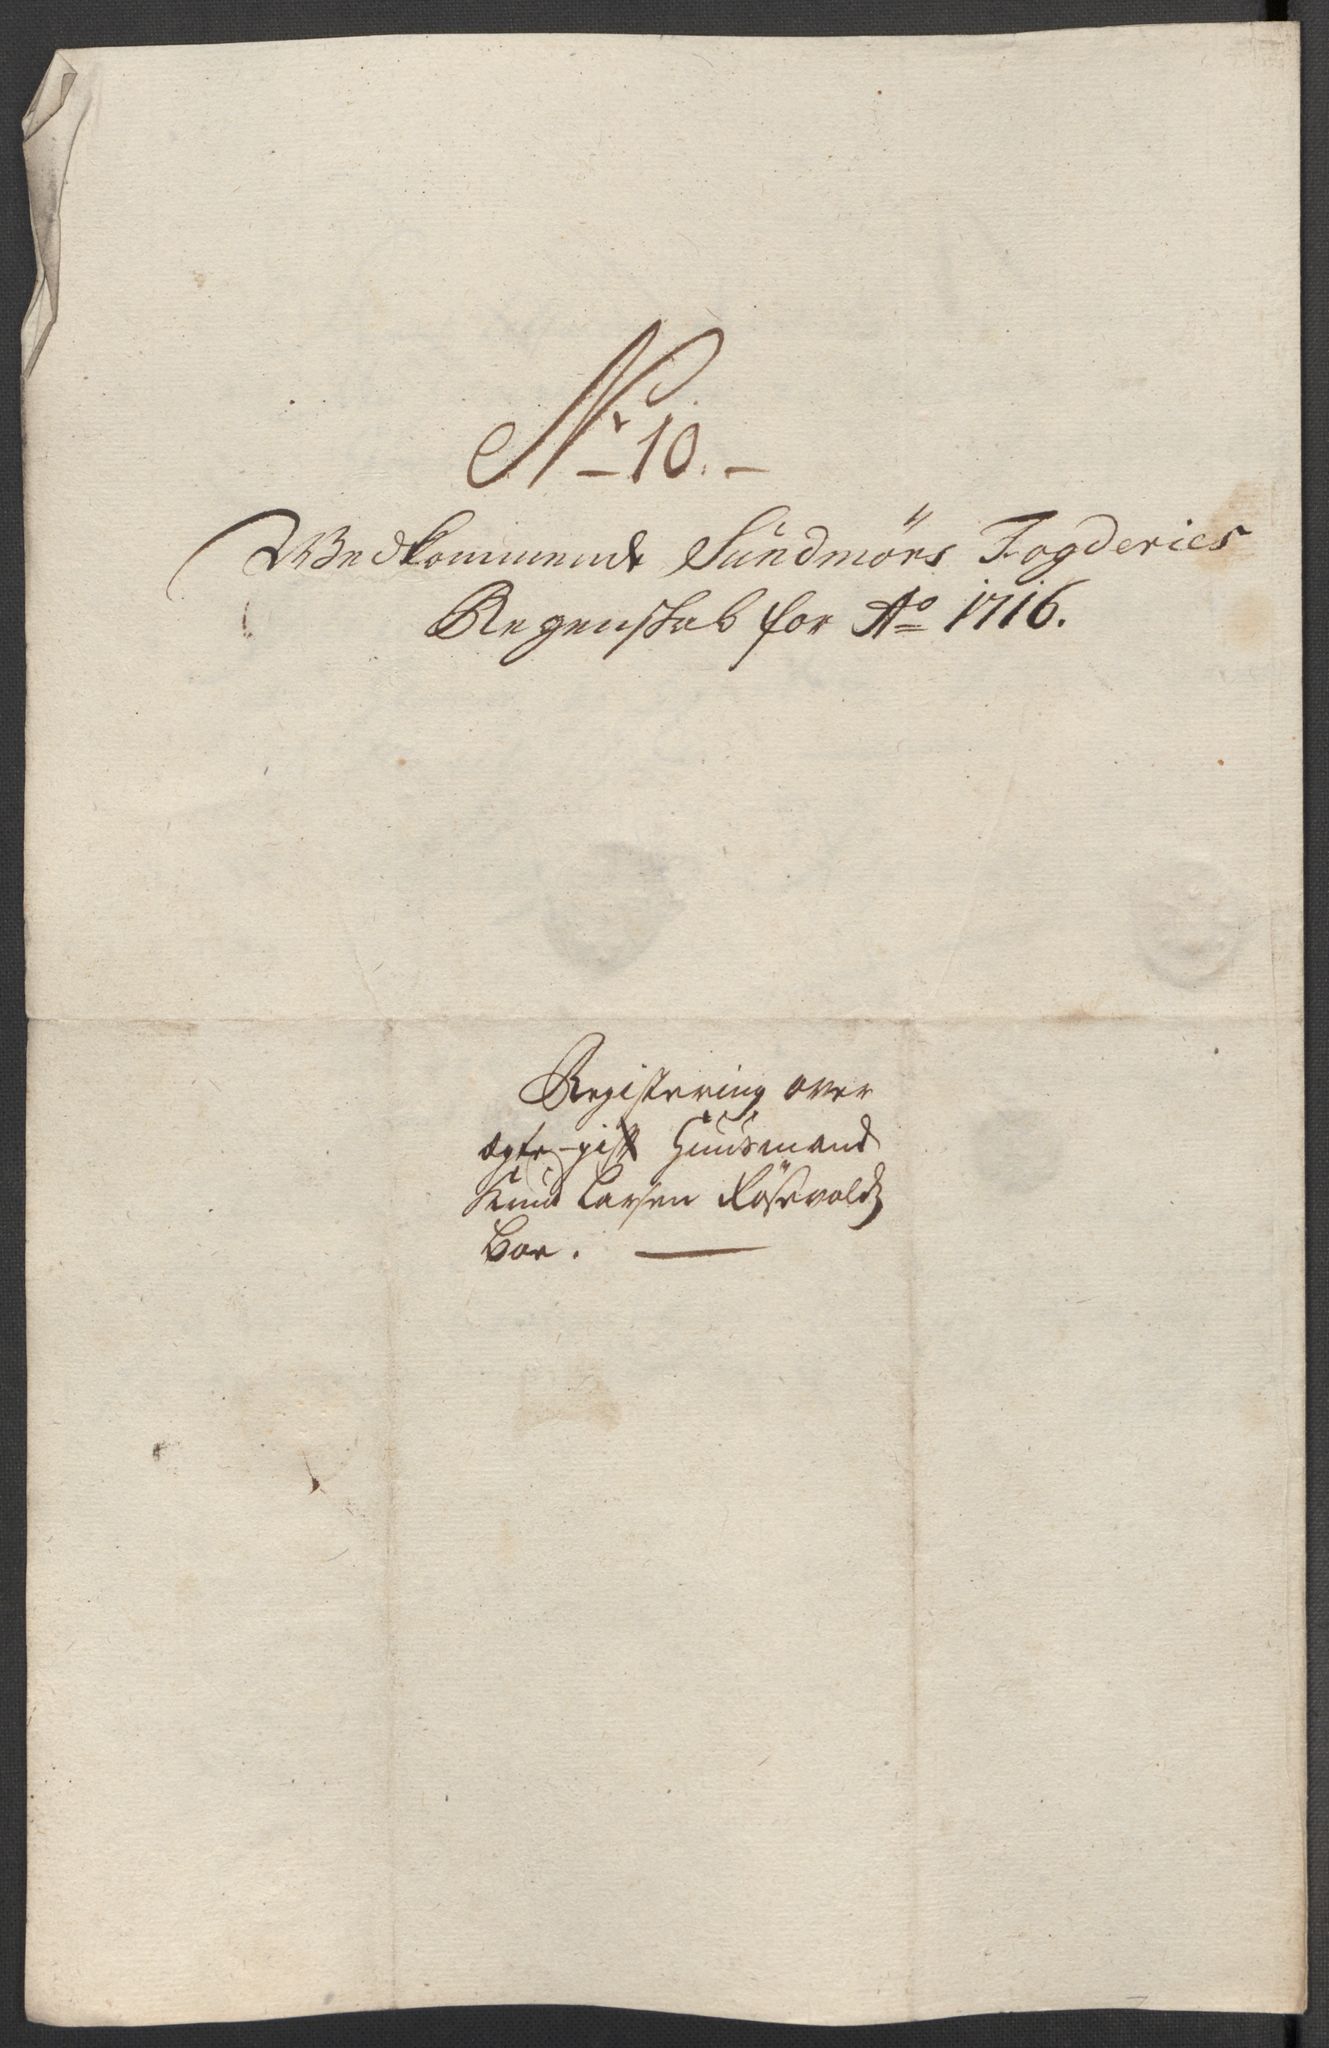 No 10.
Wedkommende Sundmörs Fogderies
Regenskab for Ao 1716.
Registering over
ægte-gift Huusmand
Knud Larsen RöSevoldz
Boe.